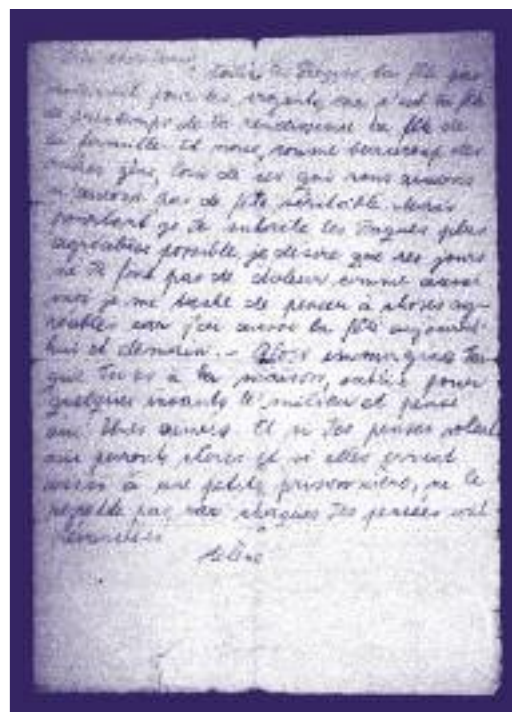 les Pâques la fête par
pour les croyants, car c'est la fête
de printemps de la renaissance la fête de
la famille. Et nous, comme beaucoup des
autres gens, loin de ses que nous aimons
n'aurons pas de fête véritable. Mais
pourtant je te souhaite les Pâques plus
agréables possible, je desire que ses jours
ne te font pas de douleur comme aussi
moi je me tache de penser à choses ag-
reables car j'ai aussi la fête aujourd'
hui et demain. - Alors immagines toi
que tu es à ta maison, oublie pour
quelques instants le milieu et pense
aux êtres aimés. Et si tes pensées volent
aux parents chers et si elles
aussi à une petite prisonnière, ne le
regrette pas, car chaques tes pensées
Hélène